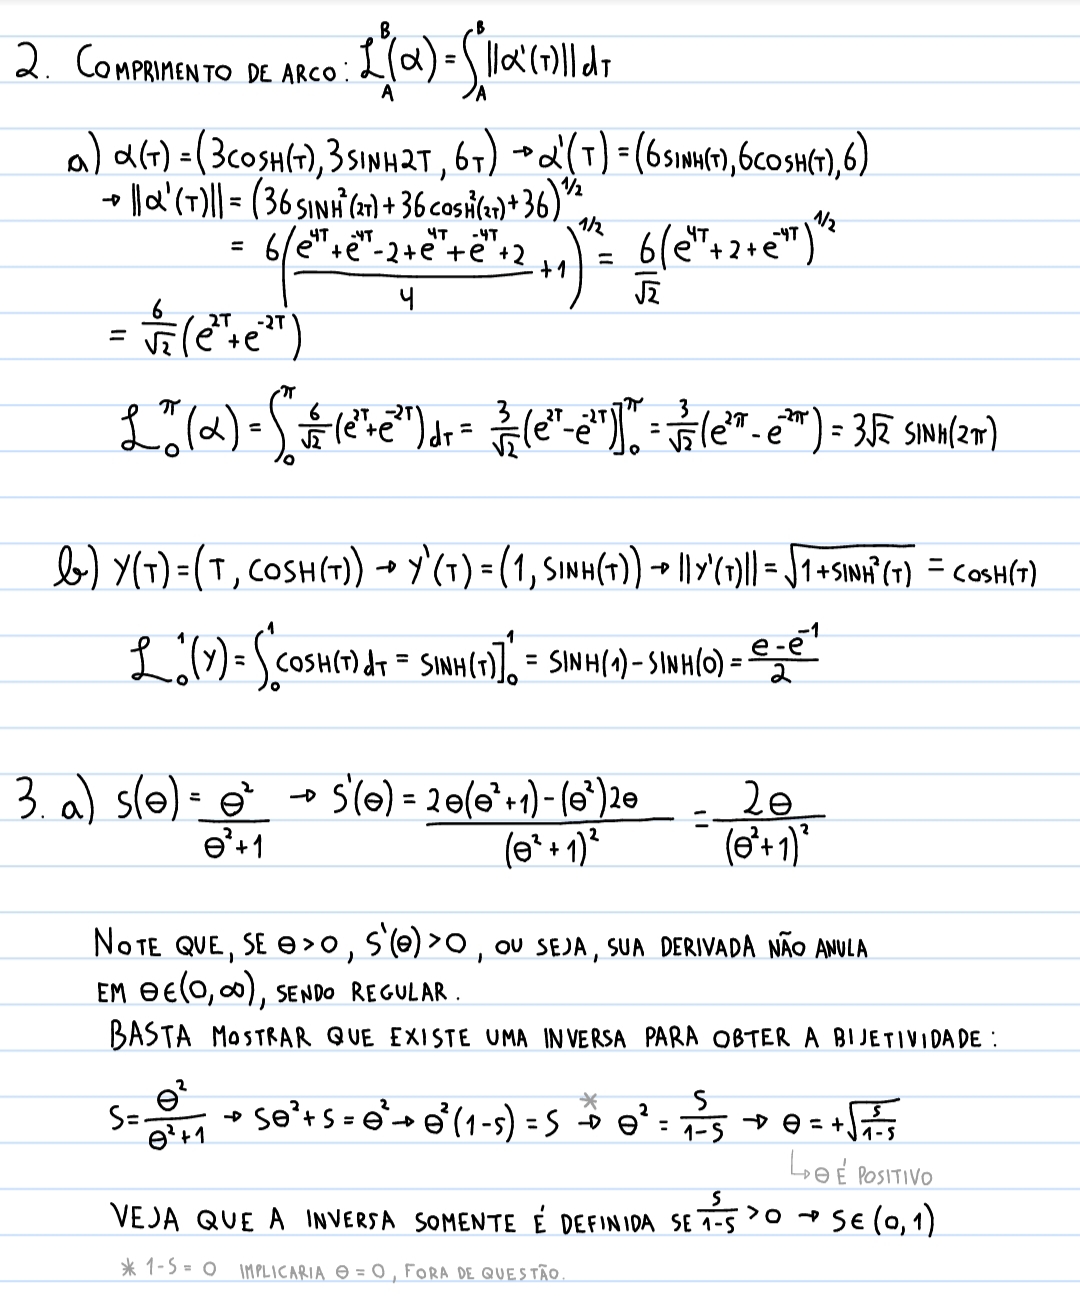 2. COMPRIMENTO DE ARCO: ℒ_A^B(α) = ∫_A^B ||α'(T)|| dT
a) α(T) = (3COSH(T), 3SINH2T, 6T) → α'(T) = (6SINH(T), 6COSH(T), 6)
→ ||α'(T)|| = (36 SINH²(2T) + 36 COSH²(2T) + 36)^1/2
= 6((e^4T + e^-4T - 2 + e^4T + e^-4T + 2)/4 + 1)^1/2 = 6/√2 (e^4T + 2 + e^-4T)^1/2
= 6/√2 (e^2T + e^-2T)
ℒ_0^π(α) = ∫_0^π 6/√2 (e^2T + e^-2T) dT = 3/√2 (e^2T - e^-2T)]_0^π = 3/√2 (e^2π - e^-2π) = 3√2 SINH(2π)
b) γ(T) = (T, COSH(T)) → γ'(T) = (1, SINH(T)) → ||γ'(T)|| = √(1 + SINH²(T)) = COSH(T)
ℒ_0^1(γ) = ∫_0^1 COSH(T) dT = SINH(T)]_0^1 = SINH(1) - SINH(0) = (e - e^-1)/2
3. a) S(θ) = θ²/(θ²+1) → S'(θ) = (2θ(θ²+1) - (θ²)2θ)/(θ²+1)² = 2θ/(θ²+1)²
NOTE QUE, SE θ > 0, S'(θ) > 0, OU SEJA, SUA DERIVADA NÃO ANULA
EM θ ∈ (0, ∞), SENDO REGULAR.
BASTA MOSTRAR QUE EXISTE UMA INVERSA PARA OBTER A BIJETIVIDADE:
S = θ²/(θ²+1) → Sθ² + S = θ² → θ²(1-S) = S →* θ² = S/(1-S) → θ = +√(S/(1-S))
↳ θ É POSITIVO
VEJA QUE A INVERSA SOMENTE É DEFINIDA SE S/(1-S) > 0 → S ∈ (0, 1)
* 1-S = 0 IMPLICARIA θ = 0, FORA DE QUESTÃO.